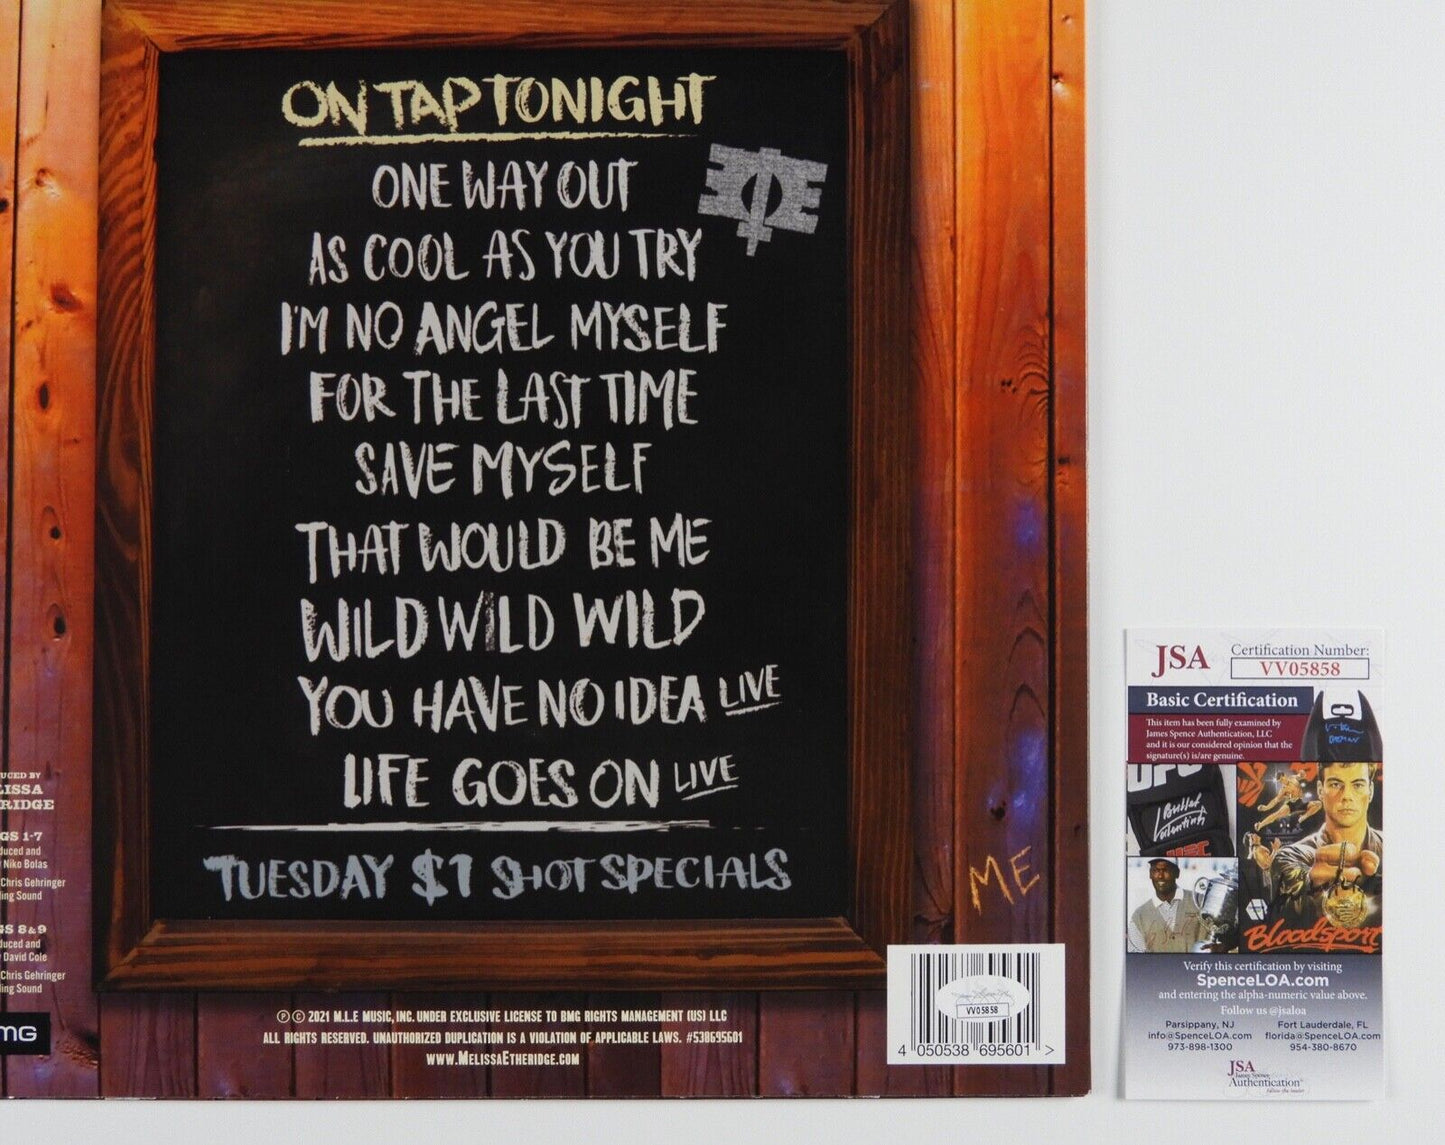 ON TAP TONIGHT
ONE WAY OUT
AS COOL AS YOU TRY
I'M NO ANGEL MYSELF
FOR THE LAST TIME
SAVE MYSELF
THAT WOULD BE ME
WILD WILD WILD
YOU HAVE NO IDEA LIVE
LIFE GOES ON LIVE
TUESDAY $1 SHOT SPECIALS
ME
UCED BY
LISSA
RIDGE
GS 1-7
duced and
Niko Bolas
Chris Gehringer
ling Sound
GS 8&9
duced and
David Cole
Chris Gehringer
ling Sound
MG
℗ © 2021 M.L.E MUSIC, INC. UNDER EXCLUSIVE LICENSE TO BMG RIGHTS MANAGEMENT (US) LLC
ALL RIGHTS RESERVED. UNAUTHORIZED DUPLICATION IS A VIOLATION OF APPLICABLE LAWS. #538695601
WWW.MELISSAETHERIDGE.COM
VV05858
4 050538 695601 >
JSA
Certification Number:
VV05858
Basic Certification
This item has been fully examined by
James Spence Authentication, LLC
and it is our considered opinion that the
signature(s) is/are genuine.
UFC
Bloodsport
Verify this certification by visiting
SpenceLOA.com
and entering the alpha-numeric value above.
Follow us @jsaloa
Parsippany, NJ
info@SpenceLOA.com
973-898-1300
Fort Lauderdale, FL
florida@SpenceLOA.com
954-380-8670
JSA
James Spence
Authentication